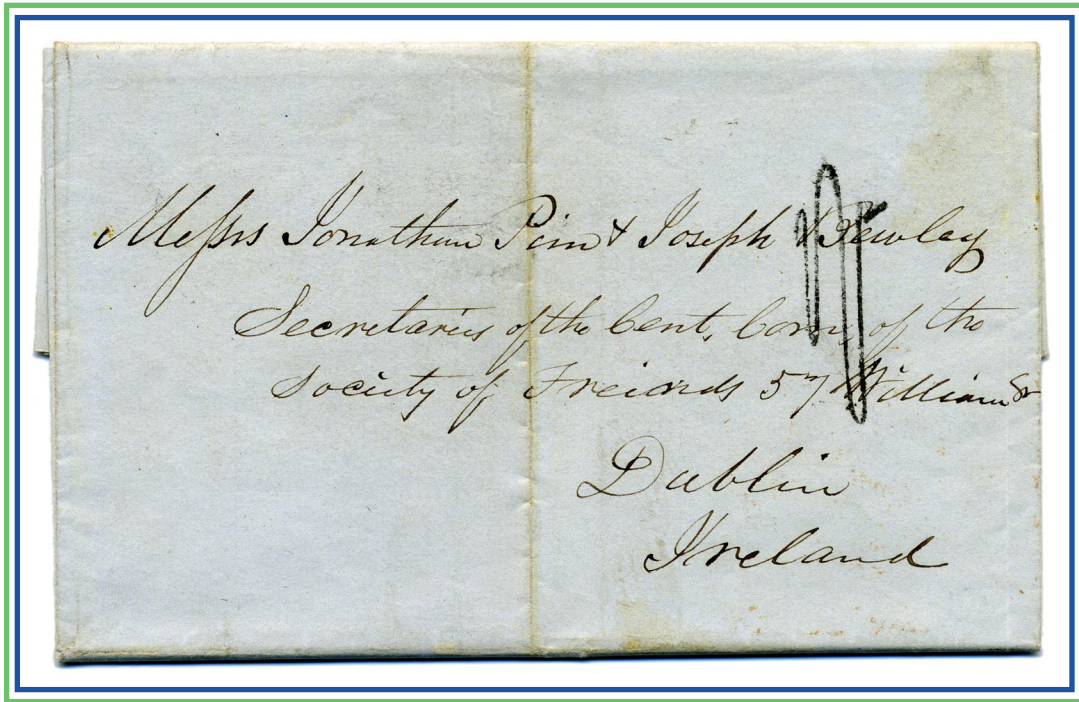 Messrs Jonathan Pim & Joseph Bewley
Secretaries of the Cent. Com. of the
Society of Freinds 57 William St
Dublin
Ireland